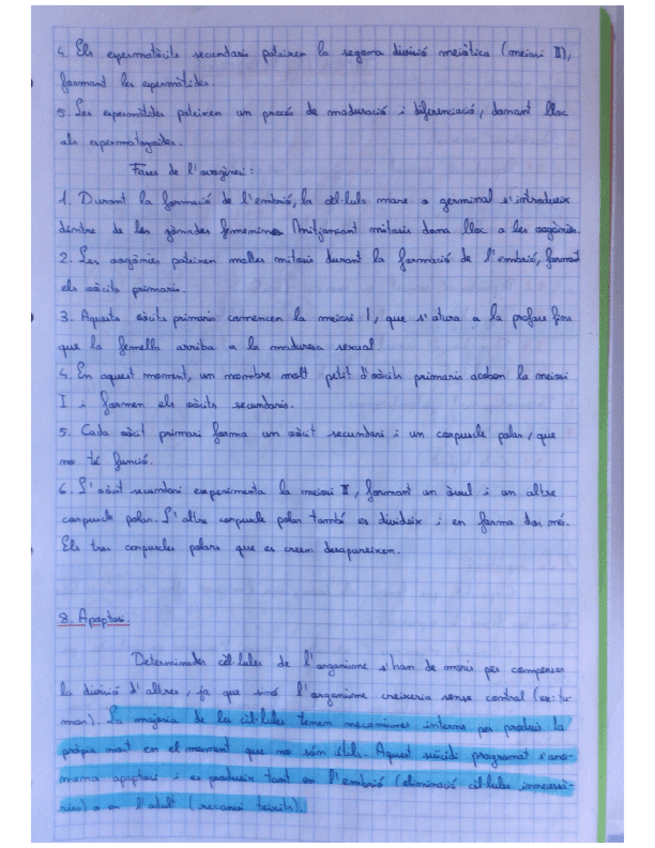 4. Els espermatòcits secundaris pateixen la segona divisió meiòtica (meiosi II),
formant les espermàtides.
5. Les espermàtides pateixen un procés de maduració i diferenciació, donant lloc
als espermatozoides.
Fases de l'ovogènesi:
1. Durant la formació de l'embrió, la cèl·lula mare o germinal s'introdueix
dintre de les gònades femenines. Mitjançant mitosis dona lloc a les oogònies.
2. Les oogònies pateixen moltes mitosis durant la formació de l'embrió, formant
els oòcits primaris.
3. Aquests oòcits primaris comencen la meiosi I, que s'atura a la profase fins
que la femella arriba a la maduresa sexual.
4. En aquest moment, un nombre molt petit d'oòcits primaris acaben la meiosi
I i formen els oòcits secundaris.
5. Cada oòcit primari forma un oòcit secundari i un corpuscle polar, que
no té funció.
6. L'oòcit secundari experimenta la meiosi II, formant un òvul i un altre
corpuscle polar. L'altre corpuscle polar també es divideix i en forma dos més.
Els tres corpuscles polars que es creen desapareixen.
8. Apoptosi.
Determinades cèl·lules de l'organisme s'han de morir per compensar
la divisió d'altres, ja que sinó l'organisme creixeria sense control (ex: tu-
mors). La majoria de les cèl·lules tenen mecanismes interns per produir la
pròpia mort en el moment que no són útils. Aquest suïcidi programat s'ano-
mena apoptosi i es produeix tant en l'embrió (eliminació cèl·lules innecessà-
ries) o en l'adult (recanvi teixits).